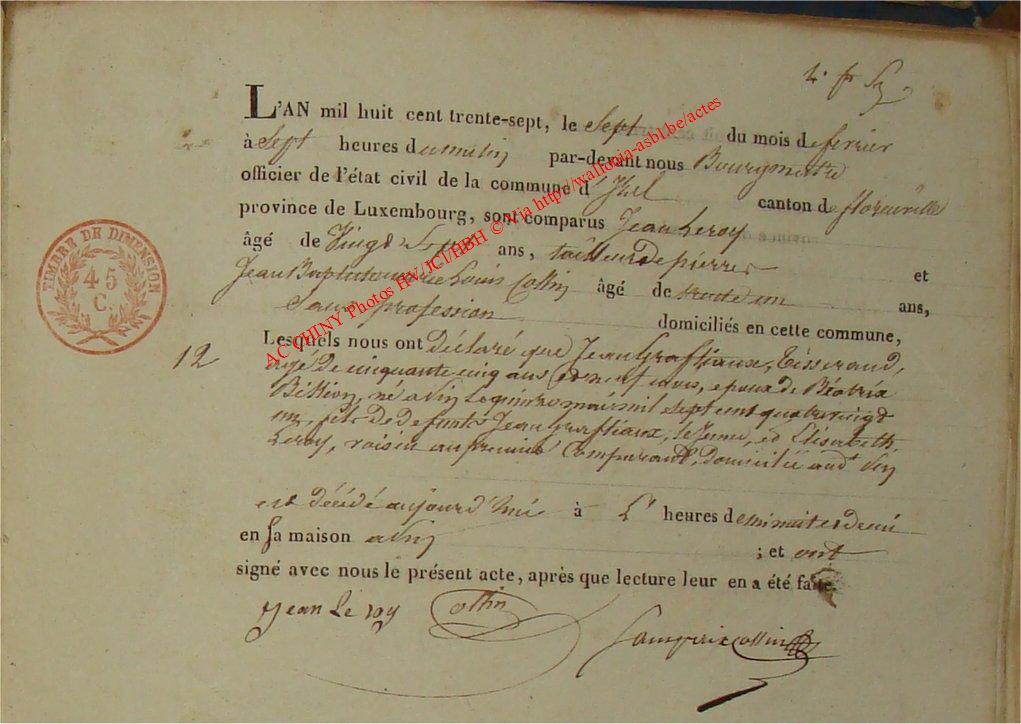 L'AN mil huit cent trente-sept, le Sept du mois de fevrier
à Sept heures du matin par-devant nous Bourgmestre
officier de l'état civil de la commune d' Izel canton de florenville
province de Luxembourg, sont comparus Jean Leroy
âgé de Vingt ans, tailleur de pierres et
Jean Baptiste Louis Collin âgé de trente un ans,
Sans profession domiciliés en cette commune,
TIMBRE DE DIMENSION
45
C.
12
Lesquels nous ont déclaré que Jean Graftiaux, Tisserand,
agé de cinquante cinq ans et neuf mois, epoux de Béatrix
né a Pin le mai mil sept cent quatrevingt
un, fils de defunts Jean Graftiaux, le jeune, et Elisabeth
Leroy, voisin au premier Comparant, domicilié aud. Pin
est décédé aujourd'hui à L' heures de minuit et demi
en sa maison a Pin ; et ont
signé avec nous le présent acte, après que lecture leur en a été faite.
Jean Le roy Collin
AC CHINY Photos HV/JCI/HBH © Via http://wallonia-asbl.be/actes